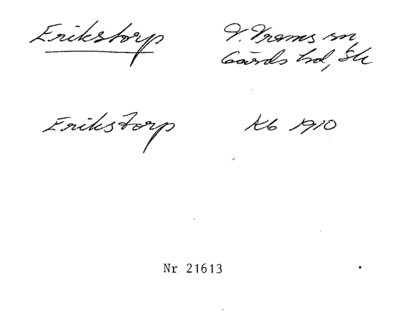 Erikstorp V. Vrams sn,
Gärds hd, Sk
Erikstorp Kb 1910
Nr 21613